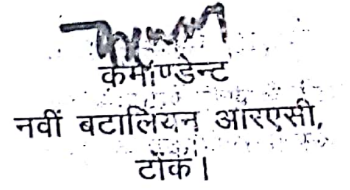 कमाण्डेन्ट
नवीं बटालियन आरएसी,
टोंक।